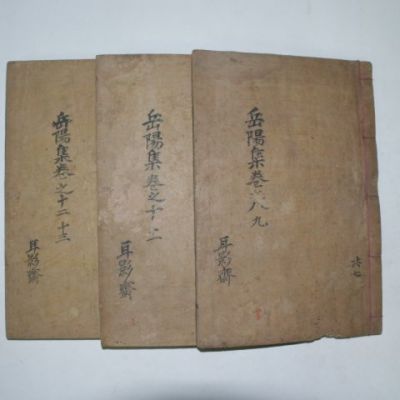 岳陽集卷之八九
耳影齋
共七
岳陽集卷之十
耳影齋
岳陽集卷之十二十三
耳影齋